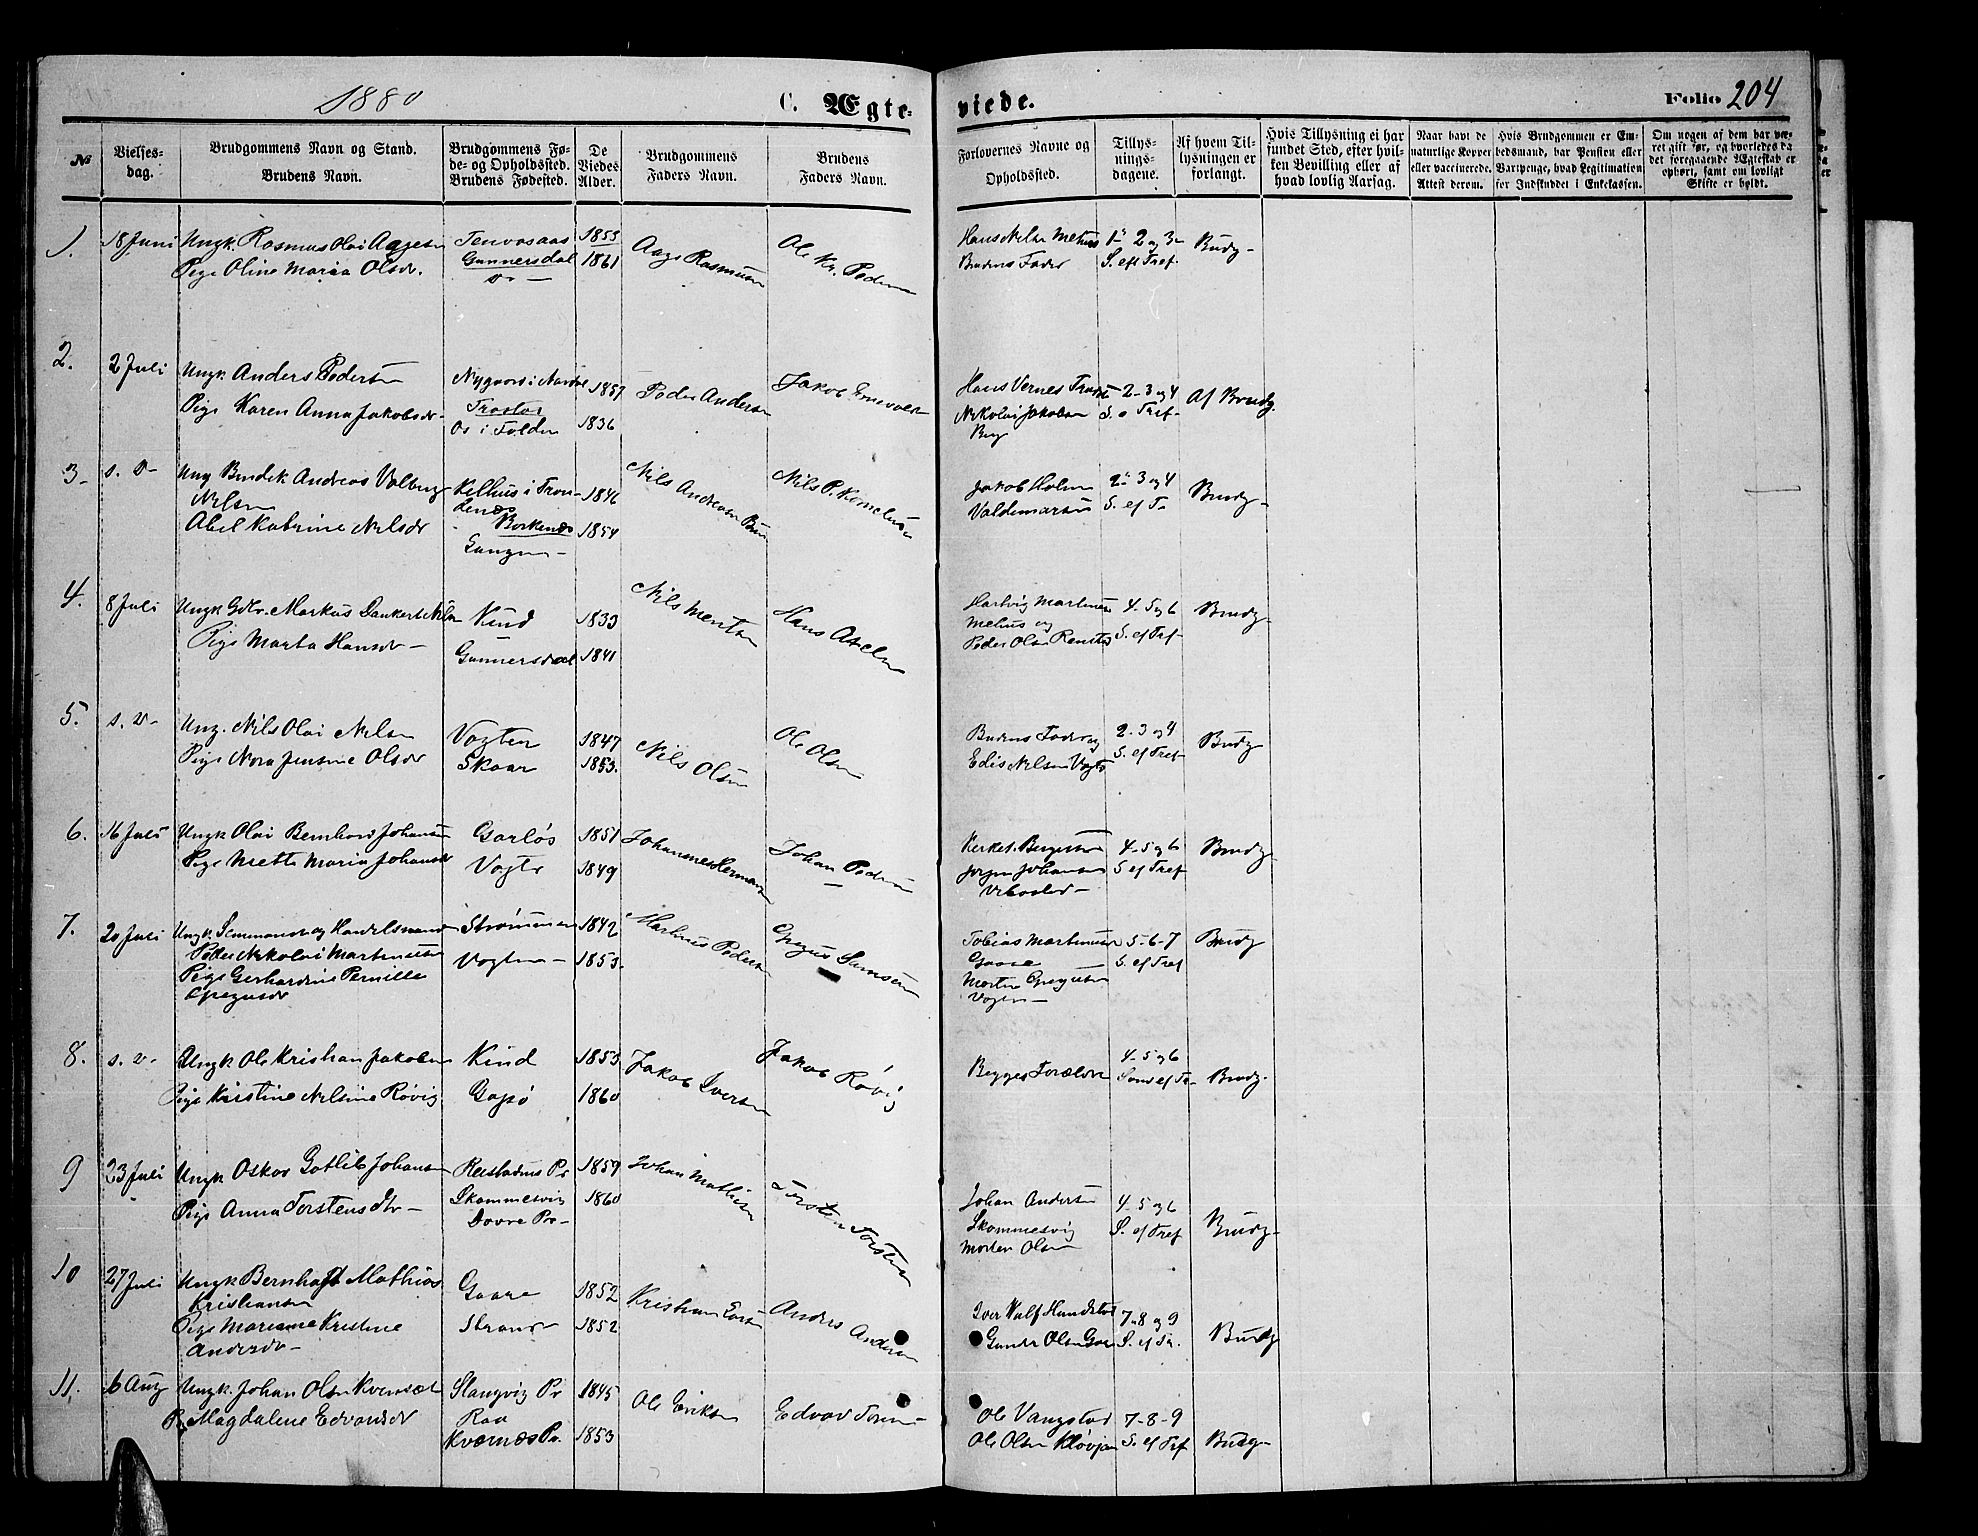 1880
C. Ægteviede.
Folio 204
№
Vielsesdag.
Brudgommens Navn og Stand.
Brudens Navn.
Brudgommens Føde- og Opholdssted.
Brudens Fødested.
De Viedes Alder.
Brudgommens Faders Navn.
Brudens Faders Navn.
Forlovernes Navne og Opholdssted.
Tillysningsdagene.
Af hvem Tillysningen er forlangt.
Hvis Tillysning ei har fundet Sted, efter hvilken Bevilling eller af hvad lovlig Aarsag.
Naar havt de naturlige Kopper eller vaccinerede. Attest derom.
Hvis Brudgommen er Embedsmand, har Pension eller Vartpenge, hvad Legitimation for Indskuddet i Enkekassen.
Om nogen af dem har været gift før, og hvorledes da det foregaaende Ægteskab er ophørt, samt om lovligt Skifte er holdt.
1. 18 Juni Ungk. Rasmus Olai Aagesen
Pige Oline Maria Olsdr.
Gunnersdal
1853
1861
Aage Rasmussen
Ole Kr. Pedersen
Hans Nilsen Melnes
Brudens Fader
1- 2 og 3-
S. eft Tref.
Brudg-
2. 2 Juli Ungk Anders Pedersen
Pige Karen Anna Jakobsdr-
Trastad
Os i Folden
1857
1836
Peder Andersen
Jakob
Hans Vernes Trast
Nikolai Jakobsen
Berg
2-3 og 4
S. e Tref-
Af Brudg.
3- s. D- Ung Bendik Andreas Volberg
Nilsen
Abel Katrine Nilsdr
Kelhus i Tron-
denæs
Borkenæs
Gangen-
1846
1854
Nils Andreasen
Nils P. Kornelius
Jakob Holm
Valdemarsen
2- 3 og 4
S. ef T-
Brudg-
4. 8 Juli Ungk Gdbr. Markus Dankert Nilsen
Pige Marta Hansdr-
Kind
Gunnersdal
1833
1841
Nils Mentsen
Hans Axelsen
Hartvig Martinus
Melnes og
Peder Olsen
4- 5 og 6
S. ef Tref-
Brudg-
5. s. D- Ung. Nils Olai Nilsen
Pige Nora Jensine Olsdr
Vogten
Skaar
1847
1853.
Nils Olsen
Ole Olsen
Brudens Fader og
Edis Nilsen Vogts
2-3 og 4
S. ef Tref-
Brudg
6. 16 Juli Ungk Olai Bernhard Johansen
Pige Mette Maria Johansdr
Garløs
Vogts
1851
1849
Johannes Hermansen
Johan Pedersen
Kirket. Bergstrøm
Jørgen Johansen
4-5 og 6
S ef Tref
Brudg-
7. 20 Juli Ungk. Sømmand og Handelsmand
Peder Nikolai Martinussen
Pige Gerhardine Pernille
Gregusdr
Strømmen
Vogten-
1842
1853.
Martinus Pedersen
Gregus Samsen
Tobias Martinussen
Gaare
Morten Gregusen
Vogten-
5-6-7
S. ef Tref
Brudg
8. s. D- Ungk Ole Kristian Jakobsen
Pige Kirstine Nilsine Røvig
Kind
Gapø
1853
1860
Jakob Iversen
Jakob Røvig
Begges Forældre
4-5 og 6
Brudg.
9 23 Juli Ungk Oskar Gotlib Johansen
Pige Anna Torstensdtr-
Skommesvig
Dovre Pr-
1859
1860
Johan Mathisen
Torsten Torsten
Johan Andersen
Skommesvig
Morten Olsen
4-5 og 6
S. ef Tref
Brudg-
10 27 Juli Ungk Bernhardt Mathias
Kristiansen
Pige Mariane Kristine
Andersdr-
Gaare
Strand
1852
1852
Kristian
Anders Andersen
Gunder Olsen Gaare
7-8 og 9
S. ef Tr.
Brudg
11. 6 Aug Ungk. Johan Olsen Kvernsæt
P. Magdalene Edvardsdr
Slangvig Pr
Kværnæs Pr.
1845
1853
Ole Eriksen
Edvard
Ole Vangstad
Ole Olsen Kløvjan
7-8-9
S. ef Tref
Brudg-